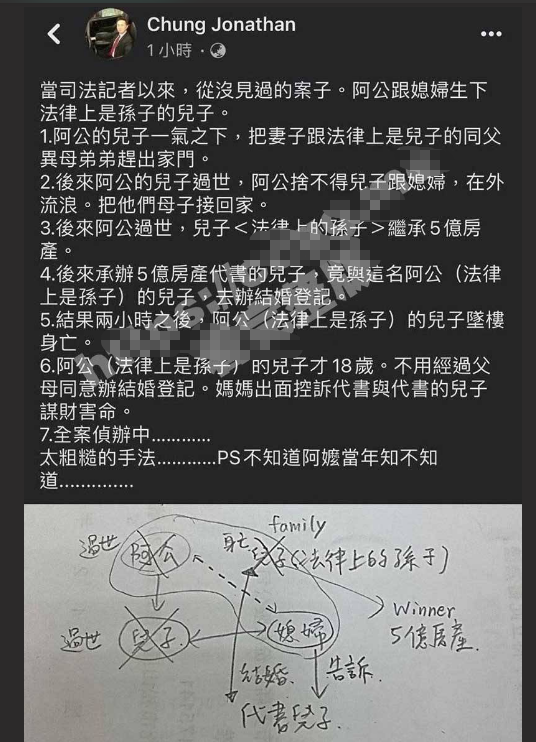 Chung Jonathan
1小時
當司法記者以來，從沒見過的案子。阿公跟媳婦生下
法律上是孫子的兒子。
1.阿公的兒子一氣之下，把妻子跟法律上是兒子的同父
異母弟弟趕出家門。
2.後來阿公的兒子過世，阿公捨不得兒子跟媳婦，在外
流浪。把他們母子接回家。
3.後來阿公過世，兒子＜法律上的孫子＞繼承5億房
產。
4.後來承辦5億房產代書的兒子，竟與這名阿公（法律
上是孫子）的兒子，去辦結婚登記。
5.結果兩小時之後，阿公（法律上是孫子）的兒子墜樓
身亡。
6.阿公（法律上是孫子）的兒子才18歲。不用經過父
母同意辦結婚登記。媽媽出面控訴代書與代書的兒子
謀財害命。
7.全案偵辦中…………
太粗糙的手法…………PS不知道阿嬤當年知不知
道…………..
family
過世 阿公 身亡 兒子(法律上的孫子)
Winner
過世 兒子 媳婦 5億房產
結婚 告訴
代書兒子